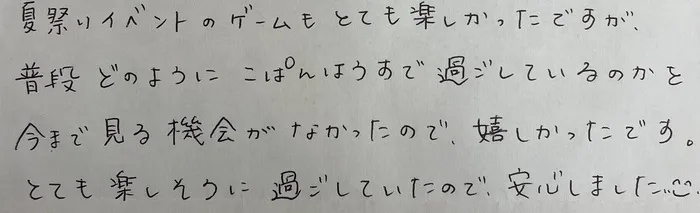 夏祭りイベントのゲームもとても楽しかったですが、
普段どのように こぱんはうすで過ごしているのかを
今まで見る機会がなかったので、嬉しかったです。
とても楽しそうに過ごしていたので、安心しました